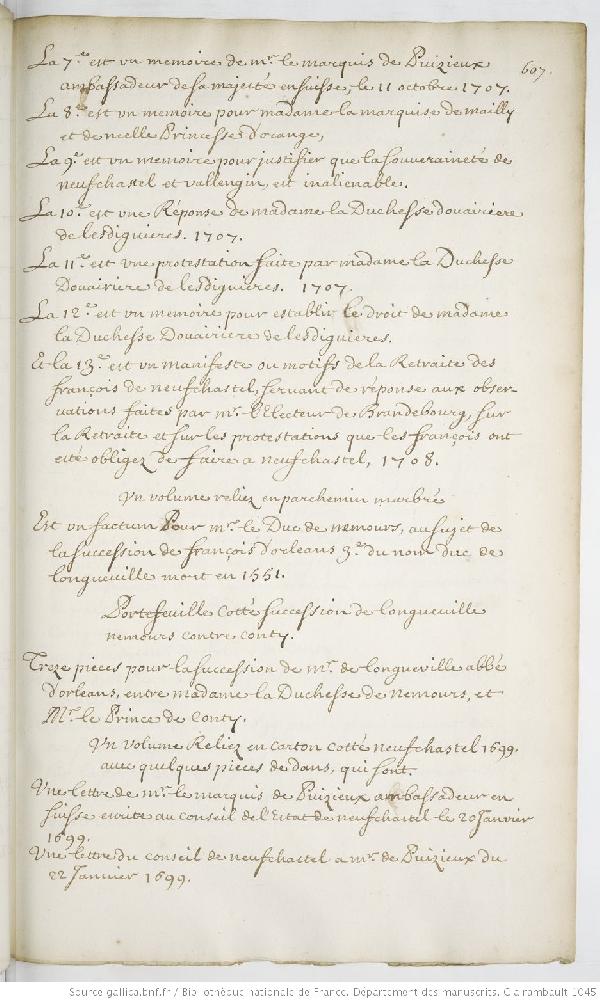 607.
La 7.e est un memoire de mr. le marquis de Puizieux
ambassadeur de sa majeité en suisse, le 11 octobre 1707.
La 8.e est un memoire pour madame la marquise de mailly
et de nesle Princesse d'orange,
La 9.e est un memoire pour justifier que la souveraineté de
neufchastel et vallengin, est inalienable.
La 10.e est une Réponse de madame la Duchesse douairiere
de lesdiguieres. 1707.
La 11.e est une protestation faite par madame la Duchesse
Douairiere de lesdiguieres. 1707.
La 12.e est un memoire pour establir le droit de madame
la Duchesse Douairiere de lesdiguieres.
Et la 13.e est un manifeste ou motifs de la Retraite des
françois de neufchastel, servant de réponse aux obser-
vations faites par mr. l'Electeur de Brandebourg, sur
la Retraite et sur les protestations que les françois ont
esté obligez de faire a neufchastel, 1708.
Un volume reliez en parchemin marbré
Est un factum Pour mr. le Duc de nemours, au sujet de
la succession de françois d'orleans 3.e du nom duc de
longueville mort en 1551.
Portefeuille cotté succession de longueville
nemours contre conty.
Treze pieces pour la succession de mr. de longueville abbé
d'orleans, entre madame la Duchesse de nemours, et
Mr. le Prince de Conty.
Un volume Reliez en carton cotté neufchastel 1699.
avec quelques pieces dedans, qui sont.
Une lettre de mr. le marquis de Puizieux ambassadeur en
suisse escrite au conseil de l'Estat de neufchastel le 20 Janvier
1699.
Une lettre du conseil de neufchastel a mr. de Puizieux du
22 Janvier 1699.
Source gallica.bnf.fr / Bibliothèque nationale de France. Département des manuscrits. Clairambault 1045